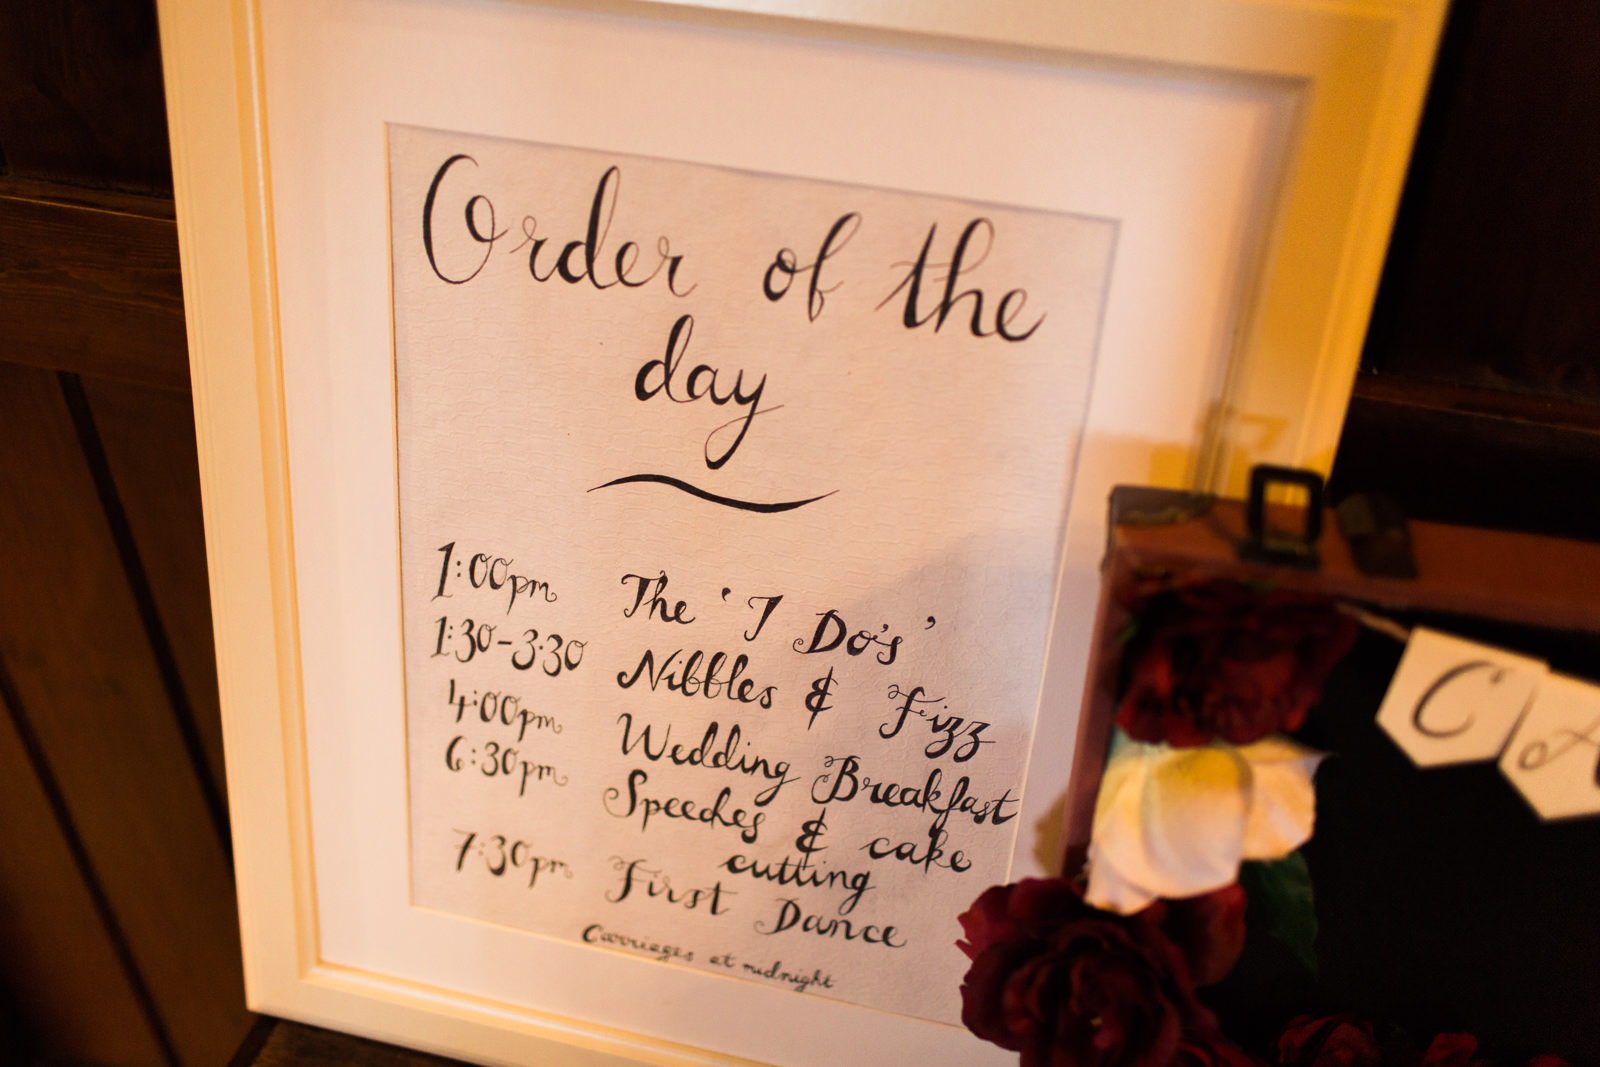 Order of the
day
1:00pm The 'I Do's'
1:30-3:30 Nibbles & Fizz
4:00pm Wedding Breakfast
6:30pm Speeches & cake
cutting
7:30pm First Dance
Carriages at midnight
CA